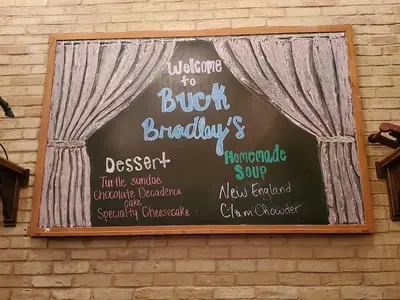 Welcome
to
Buck
Bradley's
Dessert
Turtle sundae
Chocolate Decadence
cake
Specialty Cheesecake
Homemade
Soup
New England
Clam Chowder